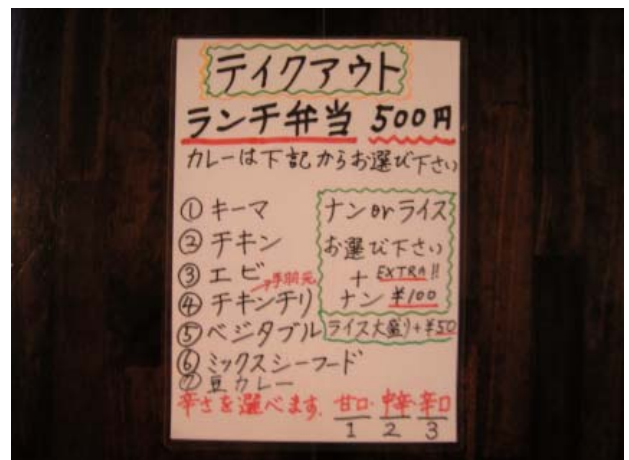 テイクアウト
ランチ弁当 500円
カレーは下記からお選び下さい
① キーマ
② チキン
③ エビ
手羽元
④ チキンチリ
⑤ ベジタブル
⑥ ミックスシーフード
⑦ 豆カレー
ナン or ライス
お選び下さい
+ EXTRA!!
ナン ¥100
ライス大盛り+¥50
辛さを選べます. 甘口・中辛・辛口
1 2 3